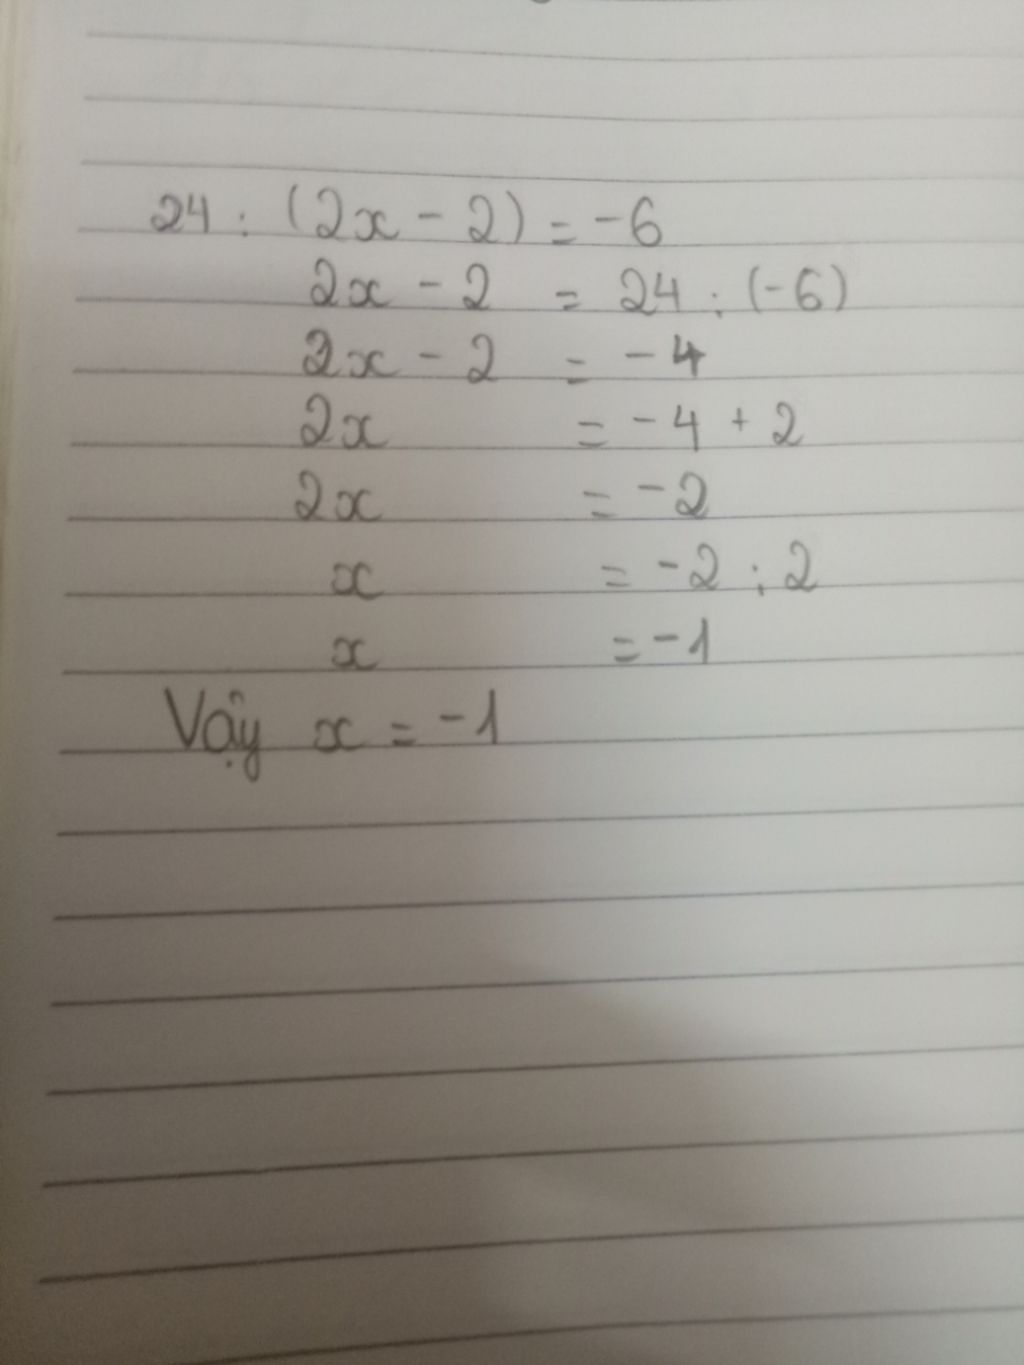 24 : (2x - 2) = -6
2x - 2 = 24 : (-6)
2x - 2 = -4
2x = -4 + 2
2x = -2
x = -2 : 2
x = -1
Vậy x = -1